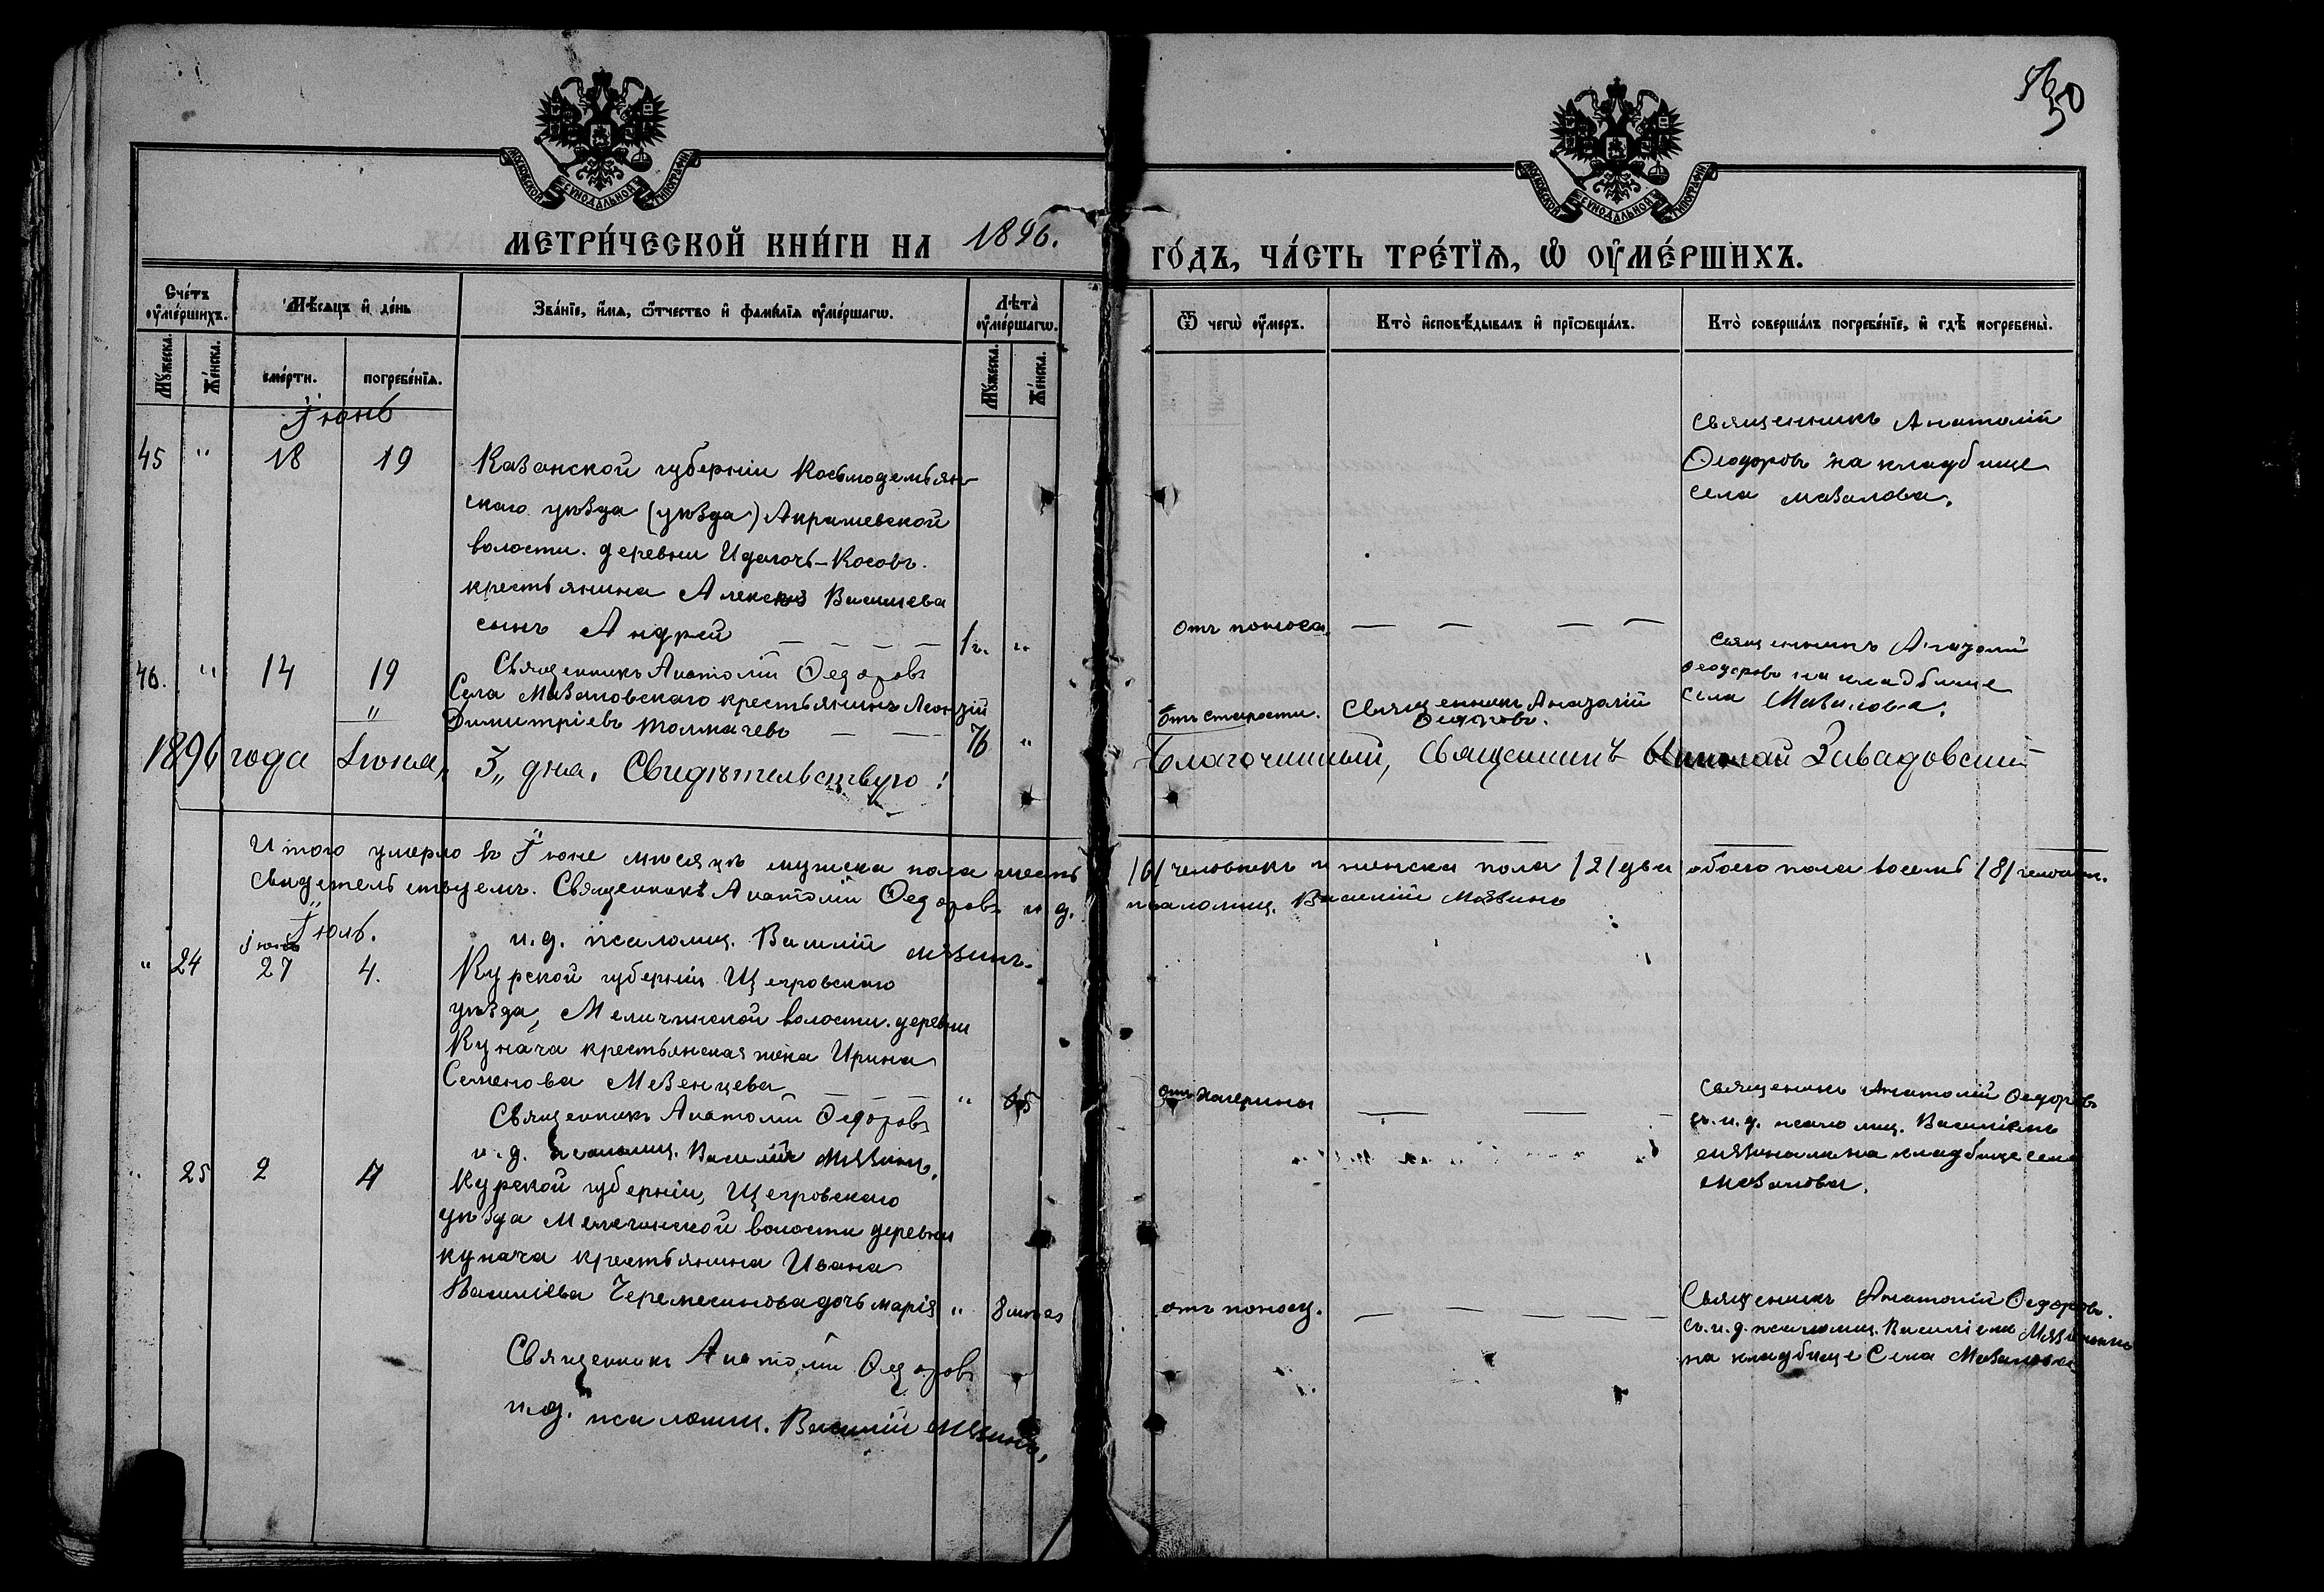 56
50
МОСКОВСКОЙ СѴНОДАЛЬНОЙ ТИПОГРАФІИ
МОСКОВСКОЙ СѴНОДАЛЬНОЙ ТИПОГРАФІИ
МЕТРИ́ЧЕСКОЙ КНИ́ГИ НА 1896. ГО́ДЪ, ЧА́СТЬ ТРЕ́ТЇѦ, Ѡ҆ ОУ҆МЕ́РШИХЪ.
Сче́тъ оу҆ме́ршихъ.
Мѣ́сяцъ и҆ де́нь
Зва́нїе, и҆́мя, ѻ҆́тчество и҆ фамилїя оу҆ме́ршагѡ.
Лѣ́та оу҆ме́ршагѡ.
Ѿ чегѡ̀ оу҆́меръ.
Кто̀ и҆сповѣ́дывалъ и҆ прїѡбща́лъ.
Кто̀ соверша́лъ погребе́нїе, и҆ гдѣ̀ погребены̀.
Мꙋ́жеска.
Же́нска.
сме́рти.
погребе́нїя.
Мꙋ́жеска.
Же́нска.
Іюнь
45 " 18 19
Казанской губерніи Косьмодемьян-
скаго уѣзда (уѣзда) Акрамовской
волости. деревни Идагочь-Косовъ.
крестьянина Алексѣя Василіева
сынъ Андрей — — — — 1 г. "
отъ поноса. — — — —
священникъ Анатолій
Ѳеодоровъ на кладбище
села Мазалова.
Священникъ Анатолій Ѳедоровъ
46. " 14 19
Села Мазаловскаго крестьянинъ Леонтій
Димитріевъ Толмачевъ — — 76 "
отъ старости.
Священникъ Анатолій
Ѳедоровъ.
Священникъ Анатолій
Ѳеодоровъ на кладбище
села Мазалова.
1896 года Іюля, 3,, дня. Свидѣтельствую: Благочинный, Священникъ Николай Завадовскій
Итого умерло въ Іюне мѣсяцѣ мужеска пола шесть /6/ человѣкъ и женска пола /2/ два обоего пола восемь /8/ человѣк.
Свидетельствуемъ. Священникъ Анатолій Ѳедоровъ и.д. псаломщ. Василій Мязинъ
Іюль.
и.д. псаломщ. Василій Мязинъ.
" 24 Іюнь 27 4.
Курской губерніи Щегровскаго
уѣзда, Мелехинской волости. деревни
Кунача крестьянская жена Ирина
Семенова Мезенцева — — " 65
отъ холерины — — -
священникъ Анатолій Ѳедоровъ
съ и.д. псаломщ. Василіемъ
Мязинымъ на кладбище села
Мазалова.
Священникъ Анатолій Ѳедоровъ
и.д. псаломщ. Василій Мязинъ.
" 25 2 4
Курской губерніи, Щегровскаго
уѣзда Мелехинской волости деревни
Кунача крестьянина Ивана
Василіева Черемисинова дочь Марія " 8 мѣс
отъ поносу. — — — —
Священникъ Анатолій Ѳедоровъ.
съ и.д. псаломщ. Василіемъ Мязинымъ
на кладбище Села Мазалова
Священникъ Анатолій Ѳедоровъ
и.д. псаломщ. Василій Мязинъ,